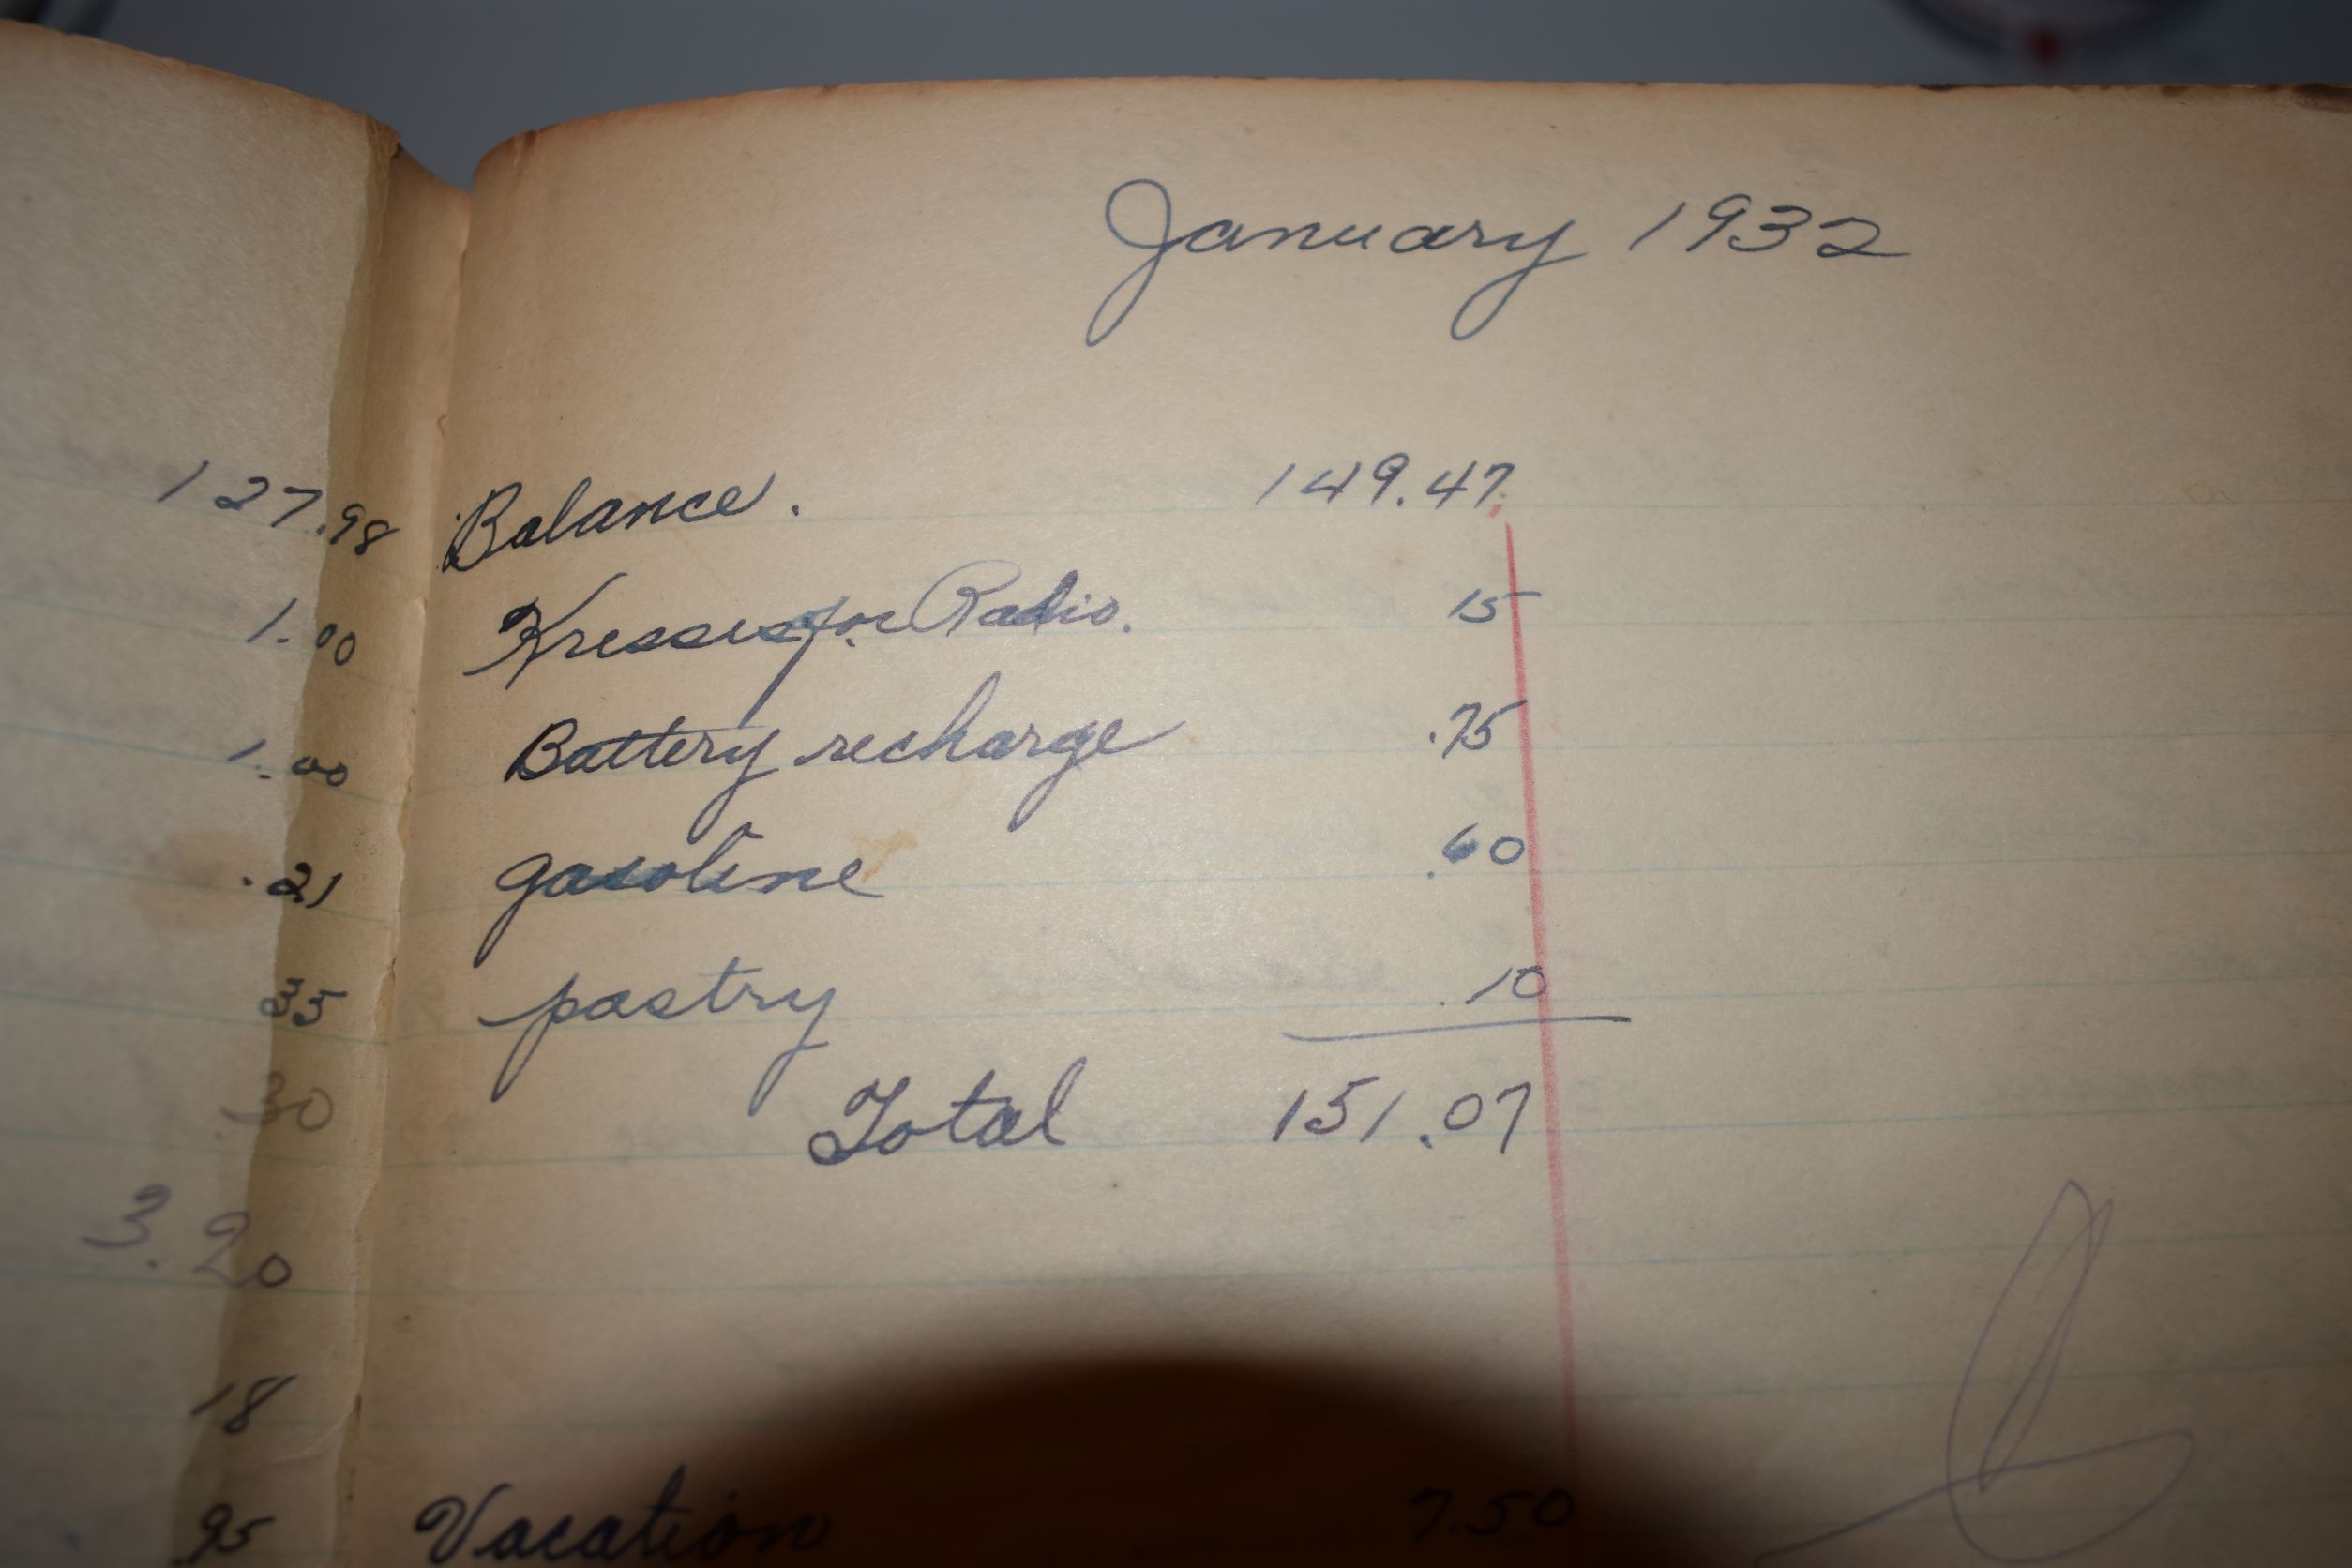 January 1932
127.98
1.00
1.00
.21
35
30
3.20
18
.95
Balance. 149.47
Kresses for Radio. 15
Battery recharge .75
gasoline .60
pastry .10
Total 151.07
Vacation 7.50